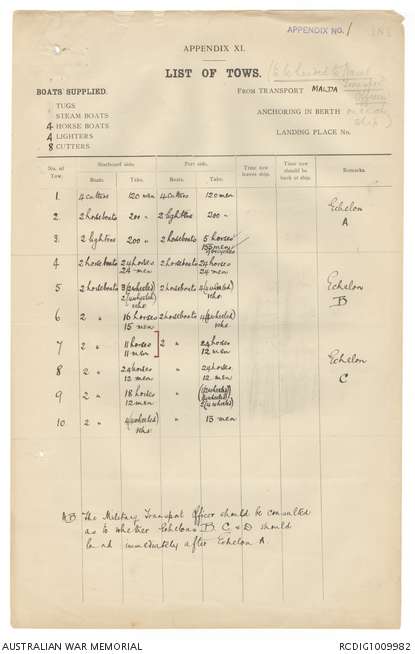 APPENDIX NO. 1
APPENDIX XI.
LIST OF TOWS.
(to be issued to Naval
Transport
Officer
on each
ship)
BOATS SUPPLIED.
TUGS
STEAM BOATS
4 HORSE BOATS
4 LIGHTERS
8 CUTTERS
FROM TRANSPORT MALDA
ANCHORING IN BERTH
LANDING PLACE No.
No. of Tow. Starboard side. Port side. Time tow leaves ship. Time tow should be back at ship. Remarks.
Boats. Take. Boats. Take.
1. 4 cutters 120 men 4 cutters 120 men
2. 2 horseboats 200 " 2 lighters 200 "
Echelon
A
3. 2 lighters 200 " 2 horseboats 5 horses
155 men
4 2 horseboats 24 horses 2 horseboats 24 horses
24 men 24 men
5 2 horseboats 3 (2 wheeled) 2 horseboats 4 (4 wheeled)
2 (4 wheeled) vehs.
vehs.
Echelon
B
6 2 " 16 horses 2 horseboats 4 (4 wheeled)
15 men vehs.
7 2 " 11 horses 2 " 24 horses
11 men 12 men
Echelon
C
8 2 " 24 horses " 24 horses
12 men 12 men
9 2 " 18 horses "
12 men 2 (4 wheeled)
10 2 " 4 (4 wheeled) " 13 men
vehs
NB The Military Transport Officer should be consulted
as to whether Echelons B. C & D should
land immediately after Echelon A.
AUSTRALIAN WAR MEMORIAL
RCDIG1009982